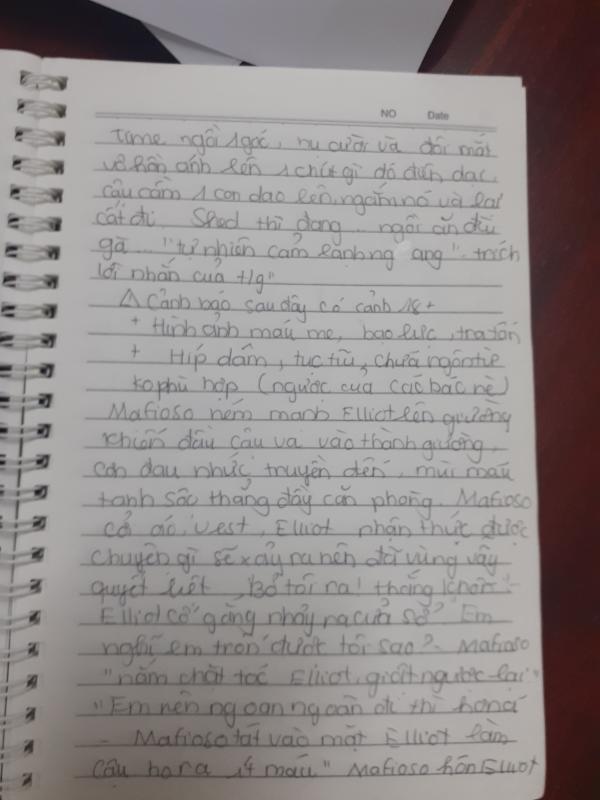 NO Date
ngồi 1 góc, nụ cười và đôi mắt
vô hồn ánh lên 1 chút gì đó điên dại,
cậu cầm 1 con dao lên, ngắm nó và lại
cất đi. Shed thì đang... ngồi ăn đùi
gà... "tự nhiên cảm lạnh ng ang". trích
lời nhắn của t/g"
⚠ Cảnh báo sau đây có cảnh 18+
+ Hình ảnh máu me, bạo lực, tra tấn
+ Hiếp dâm, tục tĩu, chứa ngôn từ
ko phù hợp (ngược của các bác nè)
Mafioso ném mạnh Elliot lên giường
khiến đầu cậu va vào thành giường,
cơn đau nhức truyền đến, mùi máu
tanh sộc thẳng đầy căn phòng. Mafioso
cở áo vest, Elliot nhận thức được
chuyện gì sẽ xảy ra nên đã vùng vẫy
quyết liệt, "Bỏ tôi ra! thằng khốn"-
Elliot cố gắng nhảy ra cửa sổ "Em
nghĩ em trốn được tôi sao?- Mafioso
"nắm chặt tóc Elliot, giật ngược lại"
"Em nên ngoan ngoãn đi thì hơn
- Mafioso tát vào mặt Elliot làm
cậu ho ra ít máu" Mafioso hôn Elliot